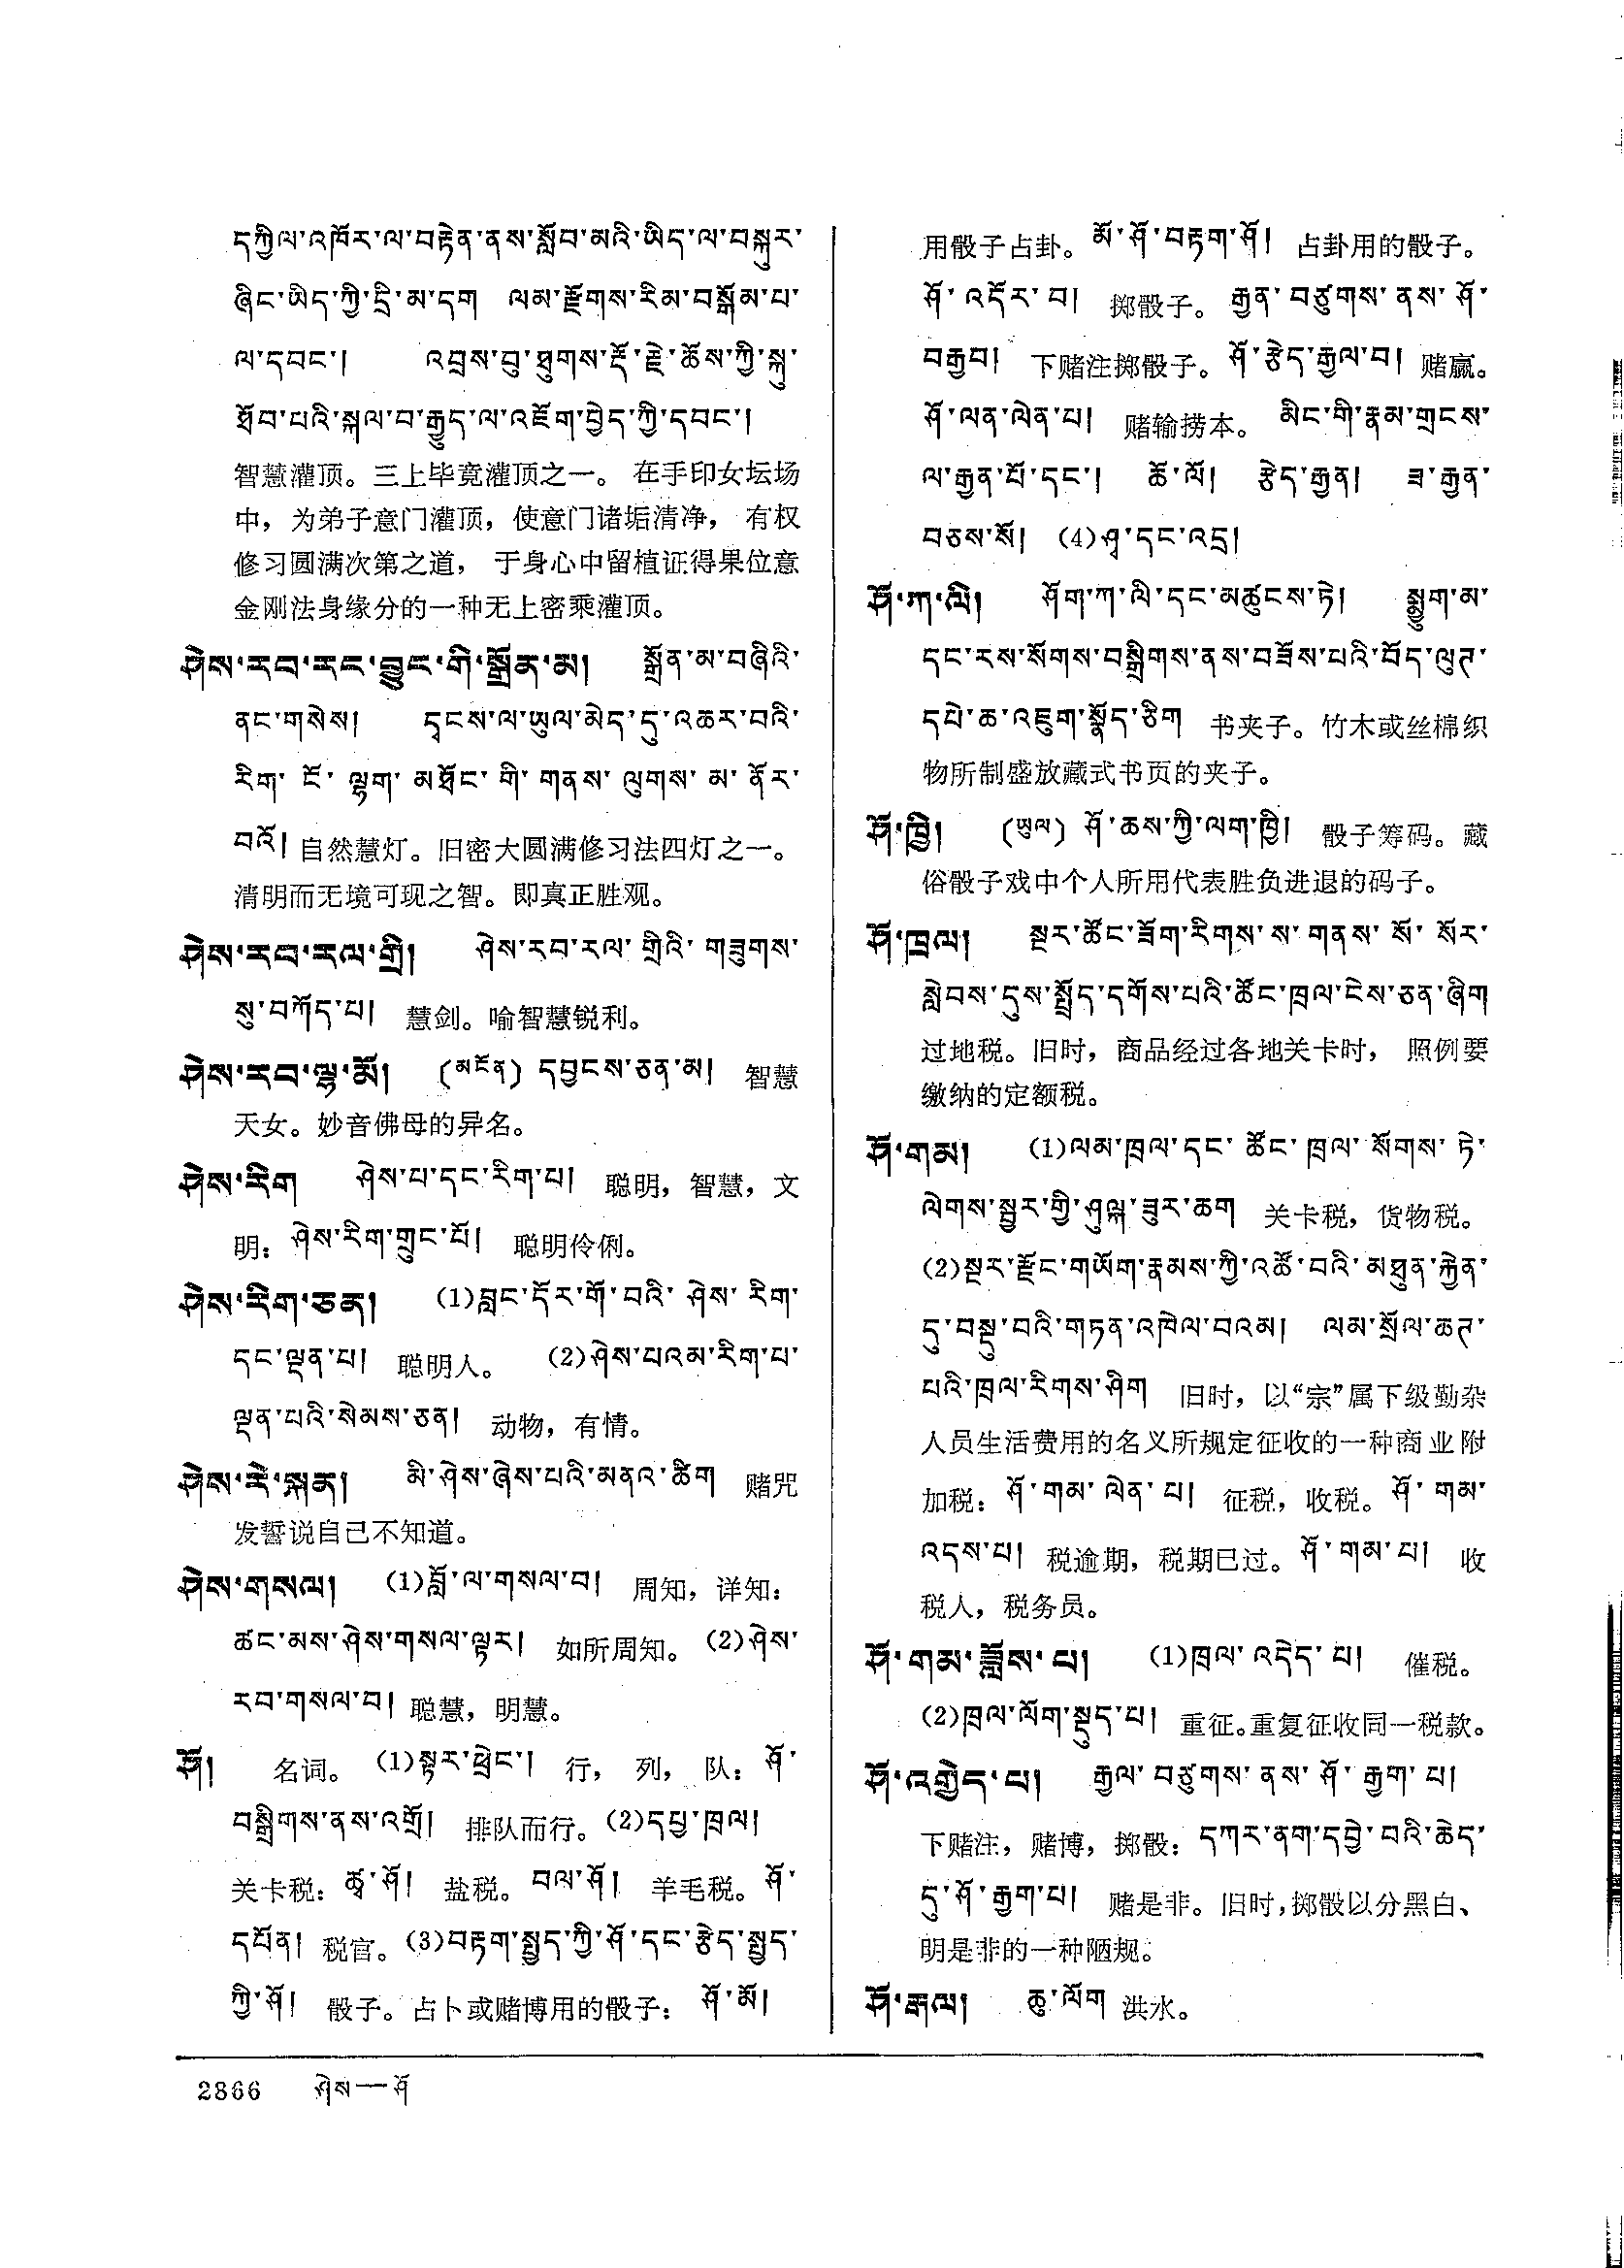 དཀྱིལ་འཁོར་ལ་བརྟེན་ནས་སློབ་མའི་ཡིད་ལ་བསྐུར་
ཞིང་ཡིད་ཀྱི་དྲི་མ་དག ལམ་རྫོགས་རིམ་བསྒོམ་པ་
ལ་དབང་། འབྲས་བུ་ཐུགས་རྡོ་རྗེ་ཆོས་ཀྱི་སྐུ་
ཐོབ་པའི་སྐལ་བ་རྒྱུད་ལ་འཇོག་བྱེད་ཀྱི་དབང་།
智慧灌顶。三上毕竟灌顶之一。 在手印女坛场
中，为弟子意门灌顶，使意门诸垢清净， 有权
修习圆满次第之道， 于身心中留植证得果位意
金刚法身缘分的一种无上密乘灌顶。
ཤེས་རབ་རང་བྱུང་གི་སྒྲོན་མ། སྒྲོན་མ་བཞིའི་
ནང་གསེས། དྭངས་ལ་ཡུལ་མེད་དུ་འཆར་བའི་
རིག་ ངོ་ ལྷག་ མཐོང་ གི་ གནས་ ལུགས་ མ་ ནོར་
བའོ། 自然慧灯。旧密大圆满修习法四灯之一。
清明而无境可现之智。即真正胜观。
ཤེས་རབ་རལ་གྲི། ཤེས་རབ་རལ་ གྲིའི་ གཟུགས་
སུ་བཀོད་པ། 慧剑。喻智慧锐利。
ཤེས་རབ་ལྷ་མོ། (མངོན) དབྱངས་ཅན་མ། 智慧
天女。妙音佛母的异名。
ཤེས་རིག ཤེས་པ་དང་རིག་པ། 聪明，智慧，文
明：ཤེས་རིག་གྲུང་པོ། 聪明伶俐。
ཤེས་རིག་ཅན། (1)བླང་དོར་གོ་བའི་ ཤེས་ རིག་
དང་ལྡན་པ། 聪明人。 (2)ཤེས་པའམ་རིག་པ་
ལྡན་པའི་སེམས་ཅན། 动物，有情。
ཤེས་རེ་སྐན། མི་ཤེས་ཞེས་པའི་མནའ་ཚིག 赌咒
发誓说自己不知道。
ཤེས་གསལ། (1)བློ་ལ་གསལ་བ། 周知，详知：
ཚང་མས་ཤེས་གསལ་ལྟར། 如所周知。(2)ཤེས་
རབ་གསལ་བ། 聪慧，明慧。
ཤོ། 名词。 (1)སྟར་ཕྲེང་། 行， 列， 队：ཤོ་
བསྒྲིགས་ནས་འགྲོ། 排队而行。(2)དཔྱ་ཁྲལ།
关卡税：ཚྭ་ཤོ། 盐税。བལ་ཤོ། 羊毛税。ཤོ་
དཔོན། 税官。(3)བརྟག་སྤྱད་ཀྱི་ཤོ་དང་རྩེད་སྤྱད་
ཀྱི་ཤོ། 骰子。占卜或赌博用的骰子： ཤོ་མོ།
用骰子占卦。མོ་ཤོ་བརྟག་ཤོ། 占卦用的骰子。
ཤོ་འདོར་བ། 掷骰子。རྒྱན་བཙུགས་ནས་ཤོ་
བརྒྱབ། 下赌注掷骰子。ཤོ་རྩེད་རྒྱལ་བ། 赌赢。
ཤོ་ལན་ལེན་པ། 赌输捞本。 མིང་གི་རྣམ་གྲངས་
ལ་རྒྱན་པོ་དང་། ཆོ་ལོ། རྩེད་རྒྱན། ཟ་རྒྱན་
བཅས་སོ། (4)ཤྭ་དང་འདྲ།
ཤོ་ཀ་ལི། ཤོག་ཀ་ལི་དང་མཚུངས་ཏེ། སྨྱུག་མ་
དང་རས་སོགས་བསྒྲིགས་ནས་བཟོས་པའི་བོད་ལུཊ་
དཔེ་ཆ་འཇུག་སྣོད་ཅིག 书夹子。竹木或丝棉织
物所制盛放藏式书页的夹子。
ཤོ་ཁྱི། (ཡུལ) ཤོ་ཆས་ཀྱི་ལག་ཁྱི། 骰子筹码。藏
俗骰子戏中个人所用代表胜负进退的码子。
ཤོ་ཁྲལ། སྔར་ཚོང་ཟོག་རིགས་ས་གནས་ སོ་ སོར་
སླེབས་དུས་སྤྲོད་དགོས་པའི་ཚོང་ཁྲལ་ངེས་ཅན་ཞིག
过地税。旧时，商品经过各地关卡时， 照例要
缴纳的定额税。
ཤོ་གམ། (1)ལམ་ཁྲལ་དང་ ཚོང་ ཁྲལ་ སོགས་ ཏེ་
ལེགས་སྦྱར་གྱི་ཤུལྐ་ཟུར་ཆག 关卡税，货物税。
(2)སྔར་རྫོང་གཡོག་རྣམས་ཀྱི་འཚོ་བའི་མཐུན་རྐྱེན་
དུ་བསྡུ་བའི་གཏན་འཁེལ་བའམ། ལམ་སྲོལ་ཆཊ་
པའི་ཁྲལ་རིགས་ཤིག 旧时，以“宗”属下级勤杂
人员生活费用的名义所规定征收的一种商业附
加税：ཤོ་གམ་ལེན་པ། 征税，收税。ཤོ་ གམ་
འདས་པ། 税逾期，税期已过。ཤོ་གམ་པ། 收
税人，税务员。
ཤོ་གམ་ཟློས་པ། (1)ཁྲལ་འདེད་པ། 催税。
(2)ཁྲལ་ལོག་སྡུད་པ། 重征。重复征收同一税款。
ཤོ་འགྱེད་པ། རྒྱལ་བཙུགས་ནས་ཤོ་རྒྱག་པ།
下赌注，赌博，掷骰：དཀར་ནག་དབྱེ་བའི་ཆེད་
དུ་ཤོ་རྒྱག་པ། 赌是非。旧时，掷骰以分黑白、
明是非的一种陋规。
ཤོ་རྒལ། ཆུ་ལོག 洪水。
2866 ཤེས—ཤོ